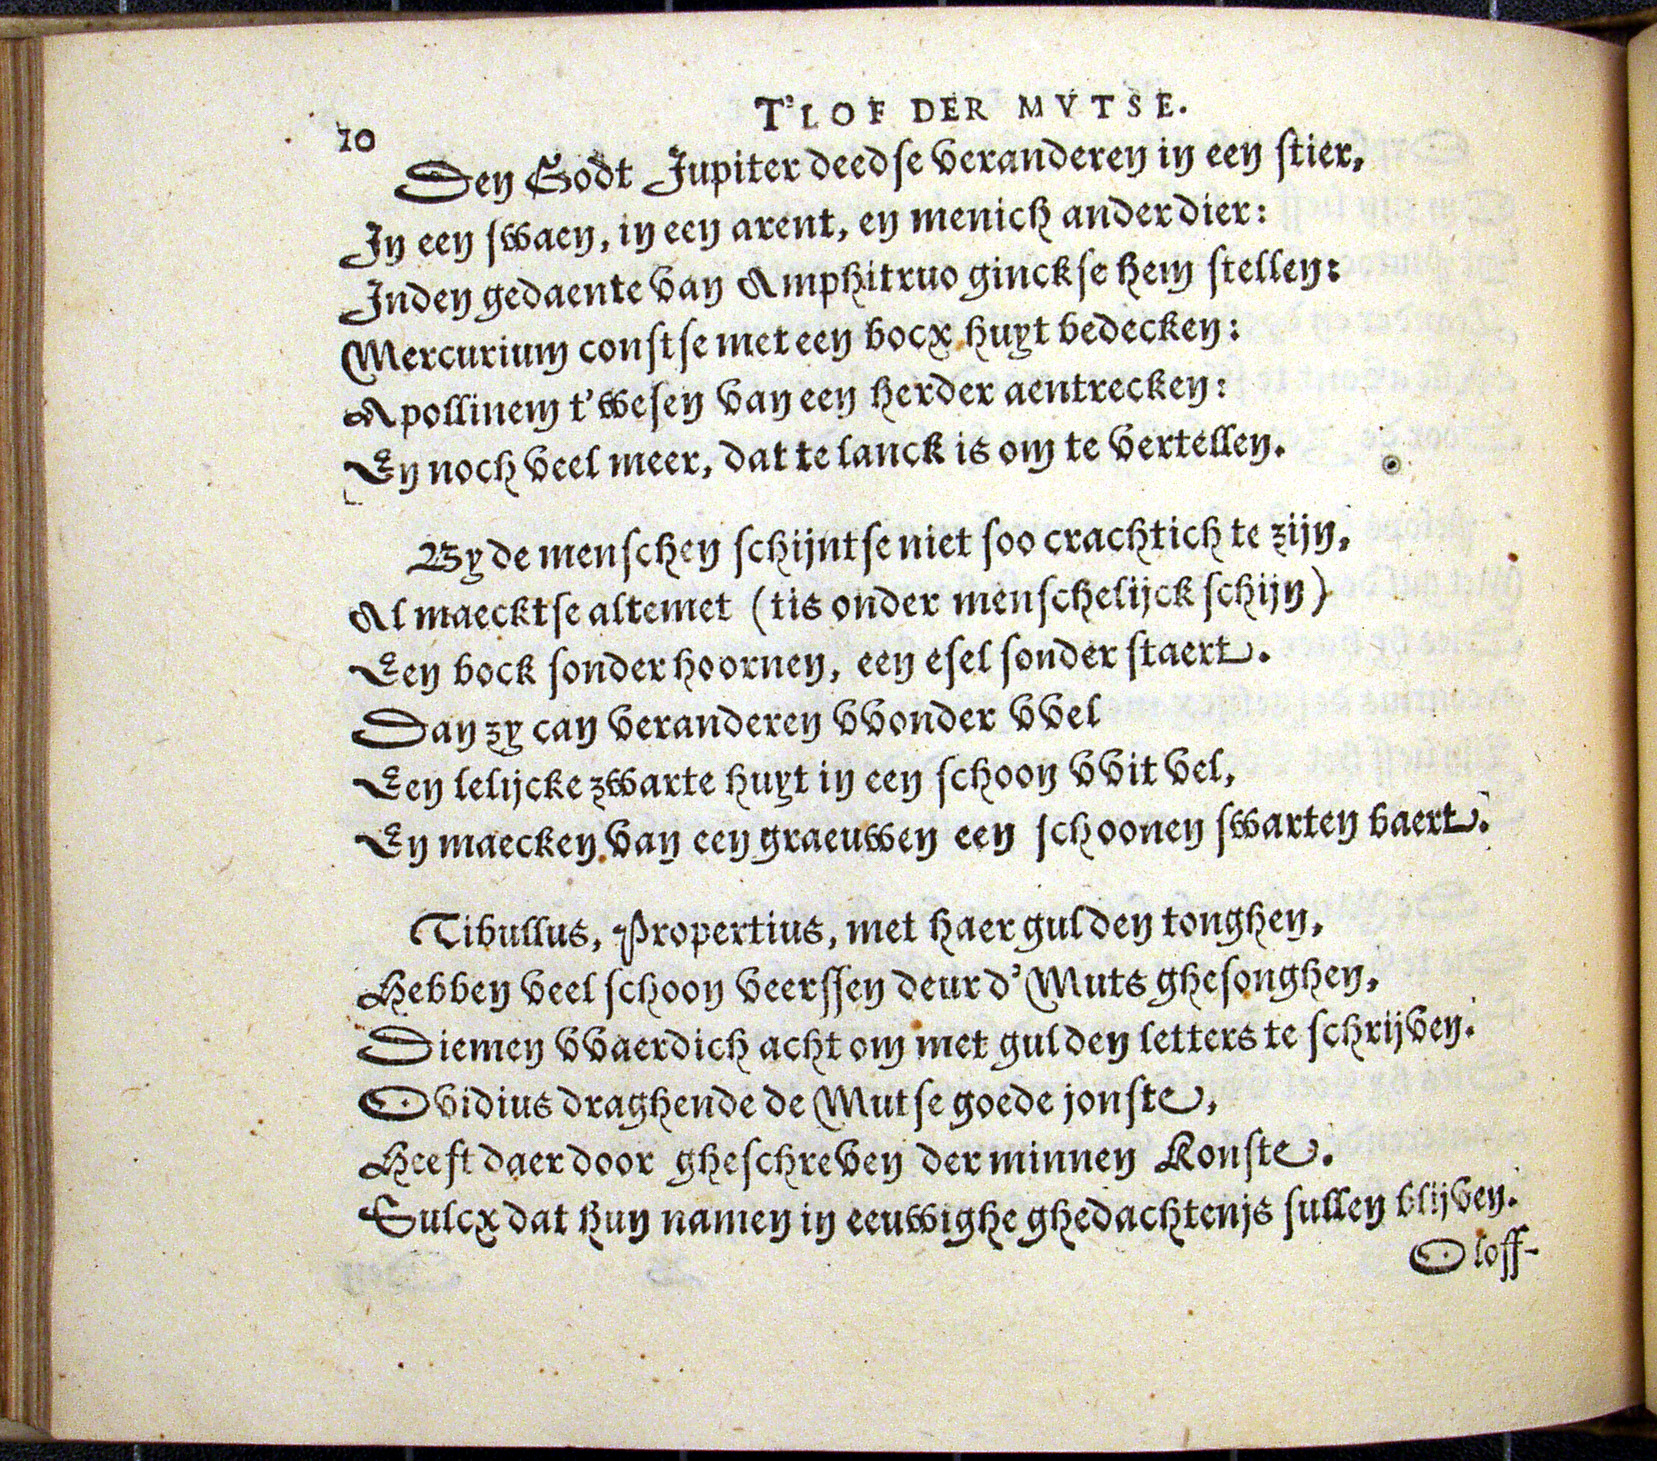 T'LOF DER MVTSE.
10
Den Godt Jupiter deedse veranderen in een stier,
In een swaen, in een arent, en menich ander dier:
Inden gedaente van Amphitruo ginckse hem stellen:
Mercurium constse met een bocx huyt bedecken:
Apollinem t'wesen van een herder aentrecken:
En noch veel meer, dat te lanck is om te vertellen.
By de menschen schijntse niet soo crachtich te zijn,
Al maecktse altemet (tis onder menschelijck schijn)
Een bock sonder hoornen, een esel sonder staert.
Dan zy can veranderen vvonder vvel
Een lelijcke zwarte huyt in een schoon vvit vel,
En maecken van een graeuwen een schoonen swarten baert.
Tibullus, Propertius, met haer gulden tonghen,
Hebben veel schoon veerssen deur d'Muts ghesonghen,
Diemen vvaerdich acht om met gulden letters te schrijven.
Ovidius draghende de Mutse goede jonste,
Heeft daer door gheschreven der minnen Konste.
Sulcx dat hun namen in eeuwighe ghedachtenjs sullen blijven.
O loff-